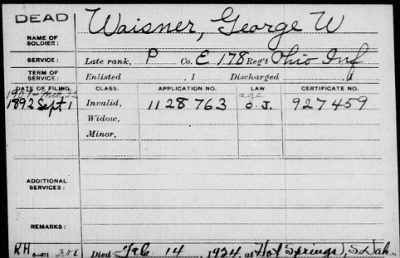 DEAD
NAME OF SOLDIER: Waisner, George W
SERVICE: Late rank, P Co. E 178 Reg't Ohio Inf
TERM OF SERVICE: Enlisted , 1 Discharged , 1
DATE OF FILING. CLASS. APPLICATION NO. LAW CERTIFICATE NO.
age
1892 Sept 1 Invalid, 1128763 O.J. 927459
Widow,
Minor,
ADDITIONAL SERVICES:
REMARKS:
RH Died Feb 14, 1924, at Hot Springs, S. Dak.